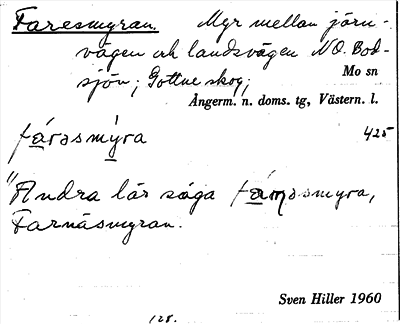 Faresmyran. Myr mellan järn-
vägen och landsvägen NO. Bod-
sjön; Gottne skog;
Mo sn
Ångerm. n. doms. tg, Västern. l.
fárəsmỳra 425
"Andra lär säga fáṇəsmyra,
Farnäsmyran.
Sven Hiller 1960
128.